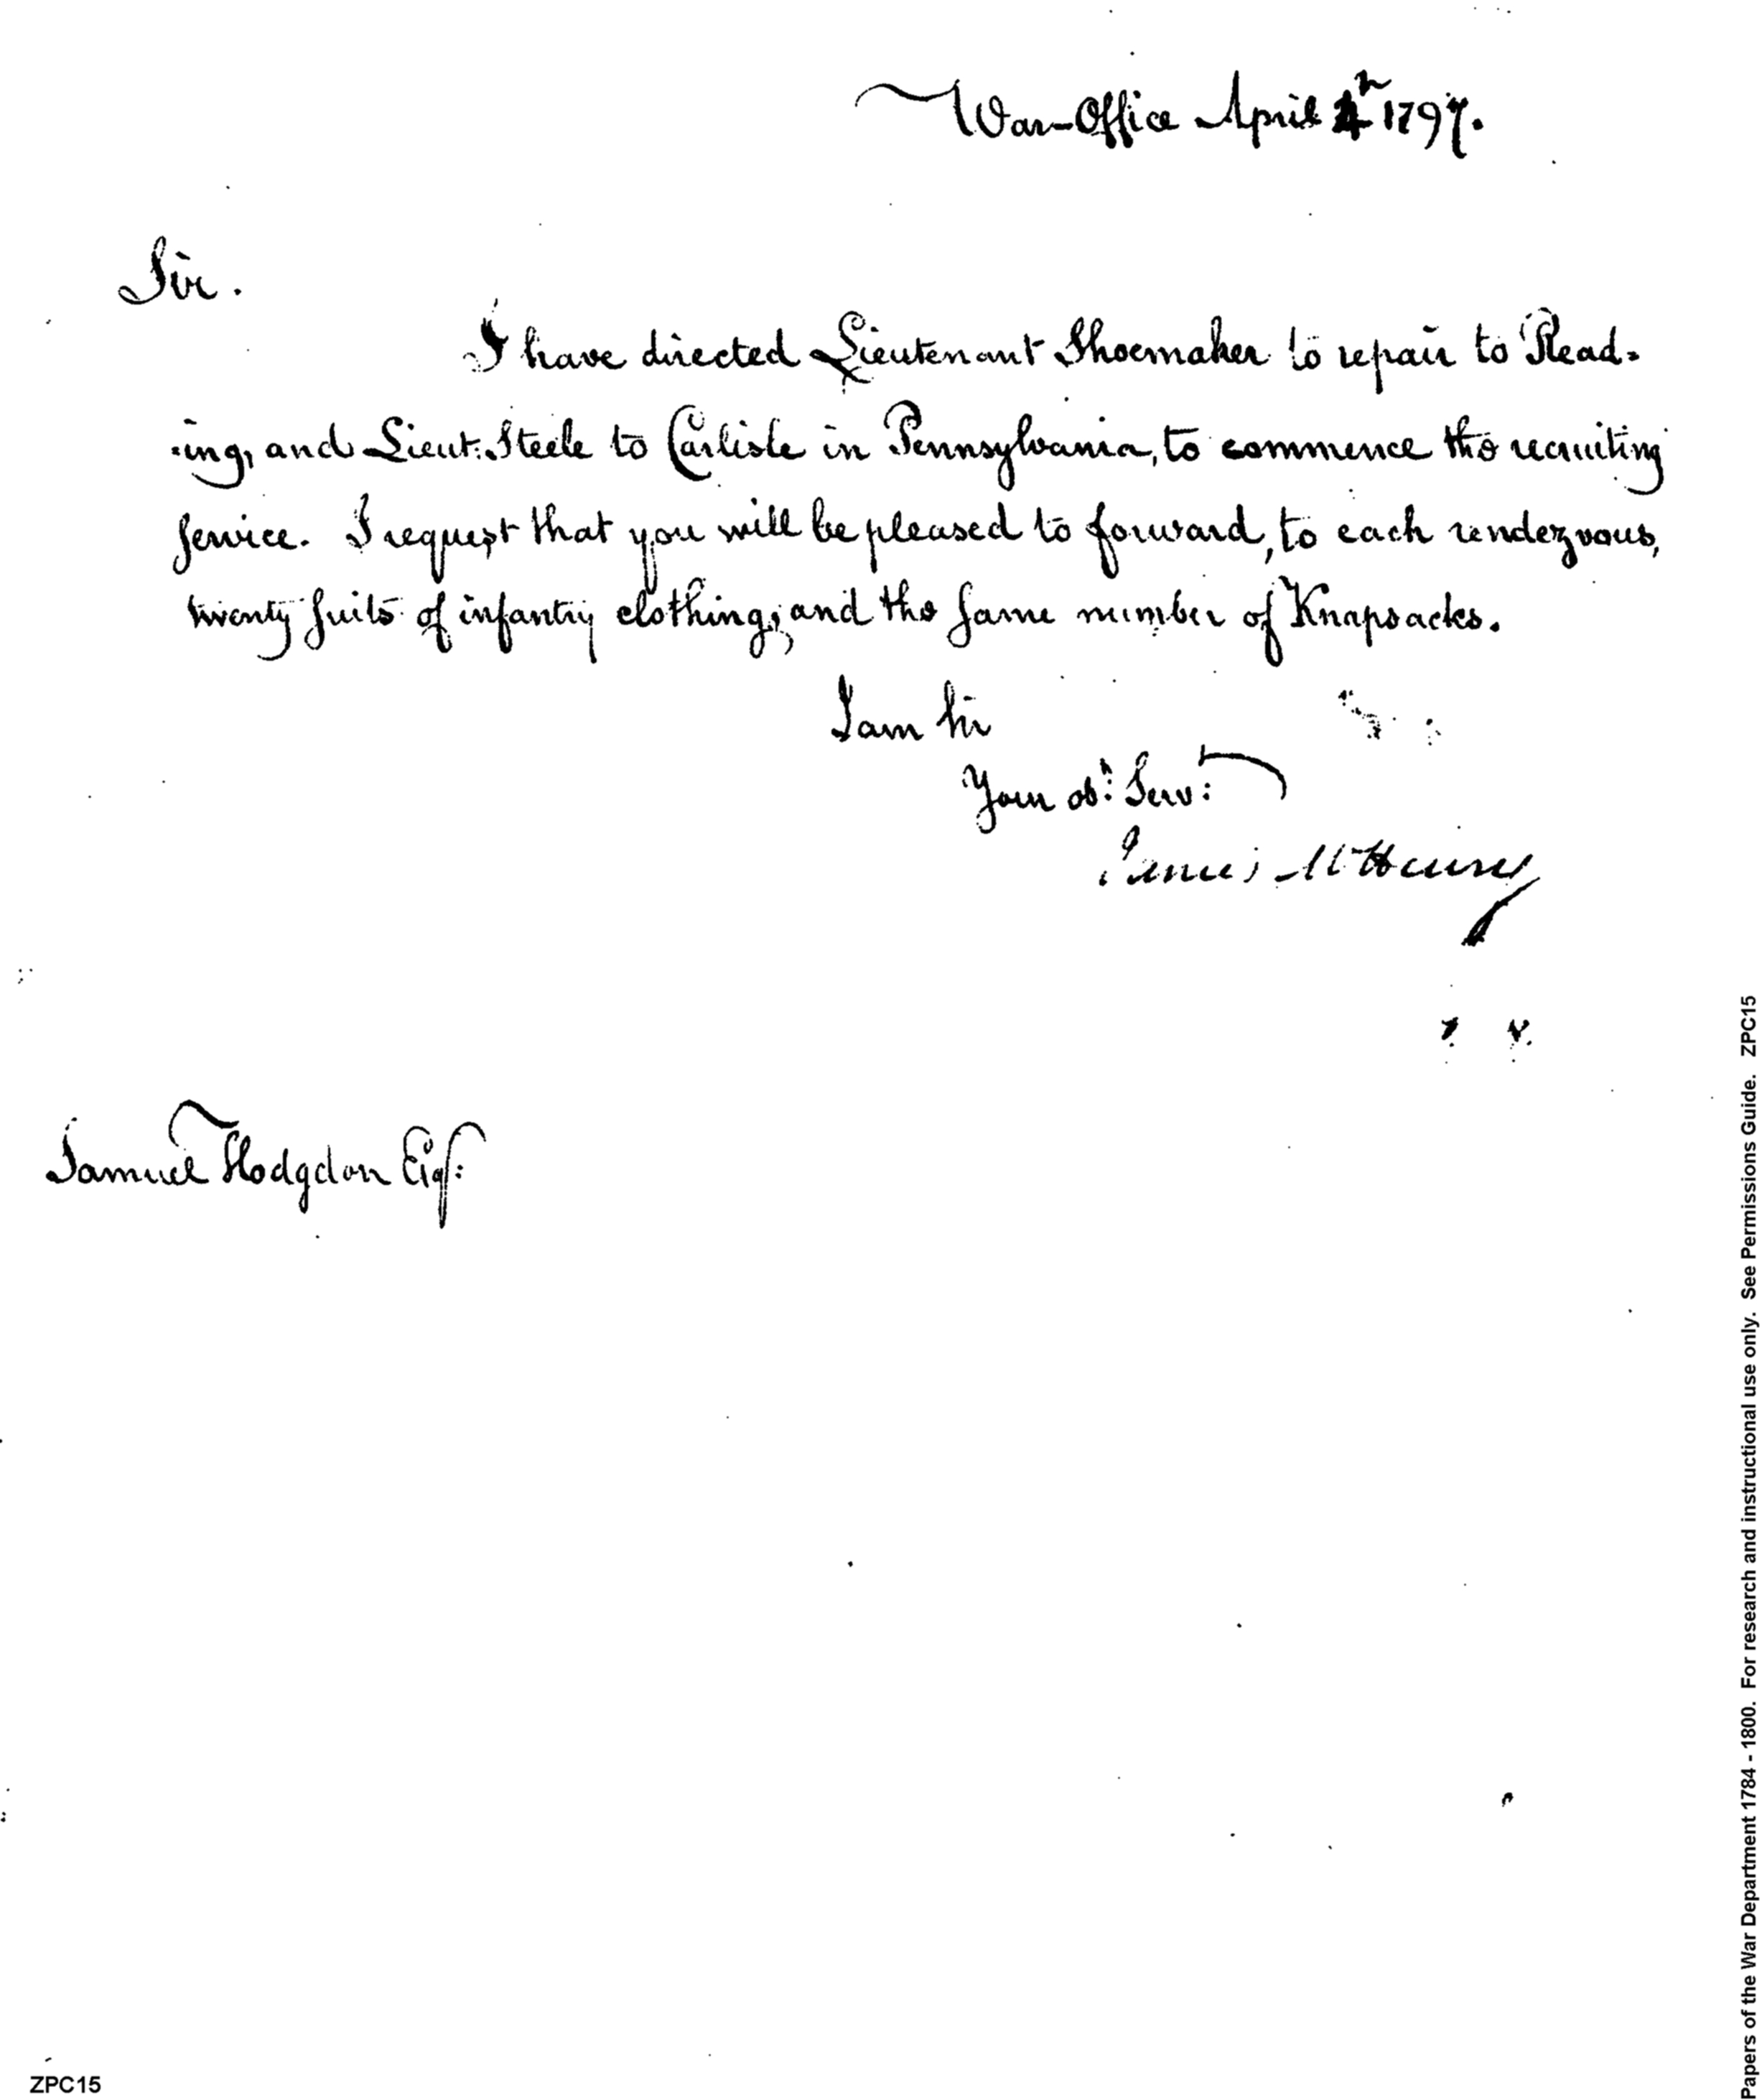 War-Office April 4th 1797.
Sir.
I have directed Lieutenant Shoemaker to repair to Read=
=ing, and Lieut: Steele to Carlisle in Pennsylvania, to commence the recruiting
service. I request that you will be pleased to forward, to each rendezvous,
twenty suits of infantry clothing, and the same number of Knapsacks.
I am Sir
Your obt: Serv:
James McHenry
Samuel Hodgdon Esq:
Papers of the War Department 1784 - 1800. For research and instructional use only. See Permissions Guide. ZPC15
ZPC15